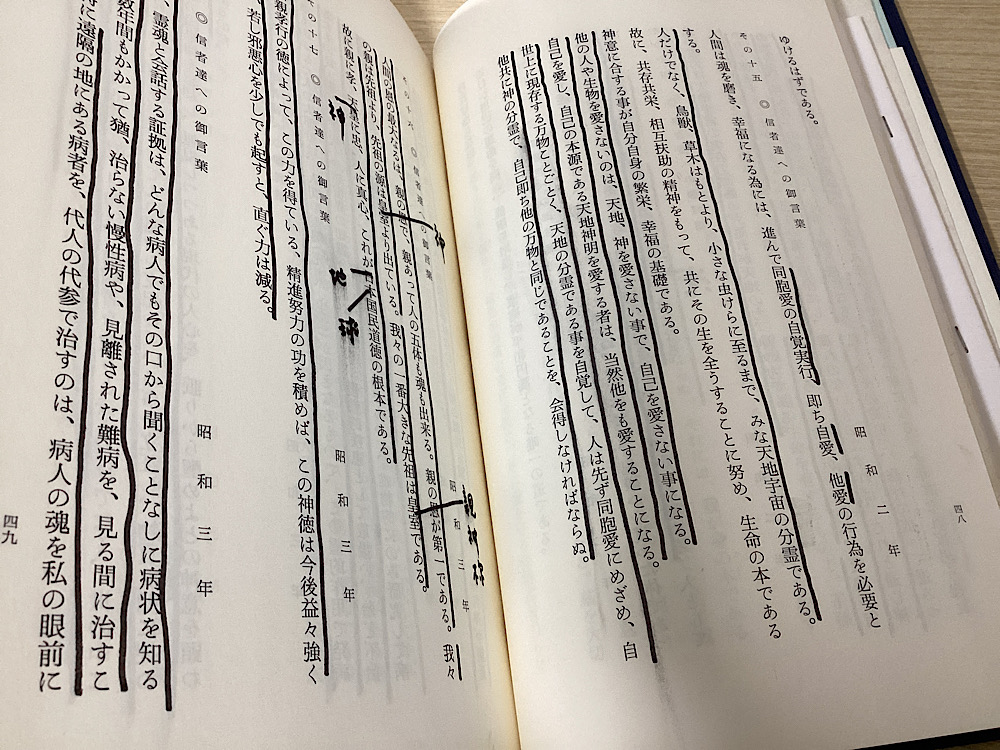 ゆけるはずである。
その十五 ◎信者達への御言葉 昭和二年
人間は魂を磨き、幸福になる為には、進んで同胞愛の自覚実行、即ち自愛、他愛の行為を必要と
する。
人だけでなく、鳥獣、草木はもとより、小さな虫けらに至るまで、みな天地宇宙の分霊である。
故に、共存共栄、相互扶助の精神をもって、共にその生を全うすることに努め、生命の本である
神意に合する事が自分自身の繁栄、幸福の基礎である。
他の人や生物を愛さないのは、天地、神を愛さない事で、自己を愛さない事になる。
自己を愛し、自己の本源である天地神明を愛する者は、当然他をも愛することになる。
世上に現存する万物ことごとく、天地の分霊である事を自覚して、人は先ず同胞愛にめざめ、自
他共に神の分霊で、自己即ち他の万物と同じであることを、会得しなければならぬ。
四八
その十六 ◎信者達への御言葉 昭和三年
人間の恩の最大なるは、親の恩で、親あって人の五体も魂も出来る。親の恩が第一である。我々
の親は先祖より、先祖の源は皇室より出ている。我々の一番大きな先祖は皇室である。
故に親に孝、天皇に忠、人に真心、これが日本国民道徳の根本である。
神
親神様
神
地球
その十七 ◎信者達への御言葉 昭和三年
親孝行の徳によって、この力を得ている、精進努力の功を積めば、この神徳は今後益々強く
若し邪悪心を少しでも起すと、直ぐ力は減る。
◎信者達への御言葉 昭和三年
、霊魂と会話する証拠は、どんな病人でもその口から聞くことなしに病状を知る
数年間もかかって猶、治らない慢性病や、見離された難病を、見る間に治すこ
に遠隔の地にある病者を、代人の代参で治すのは、病人の魂を私の眼前に
四九